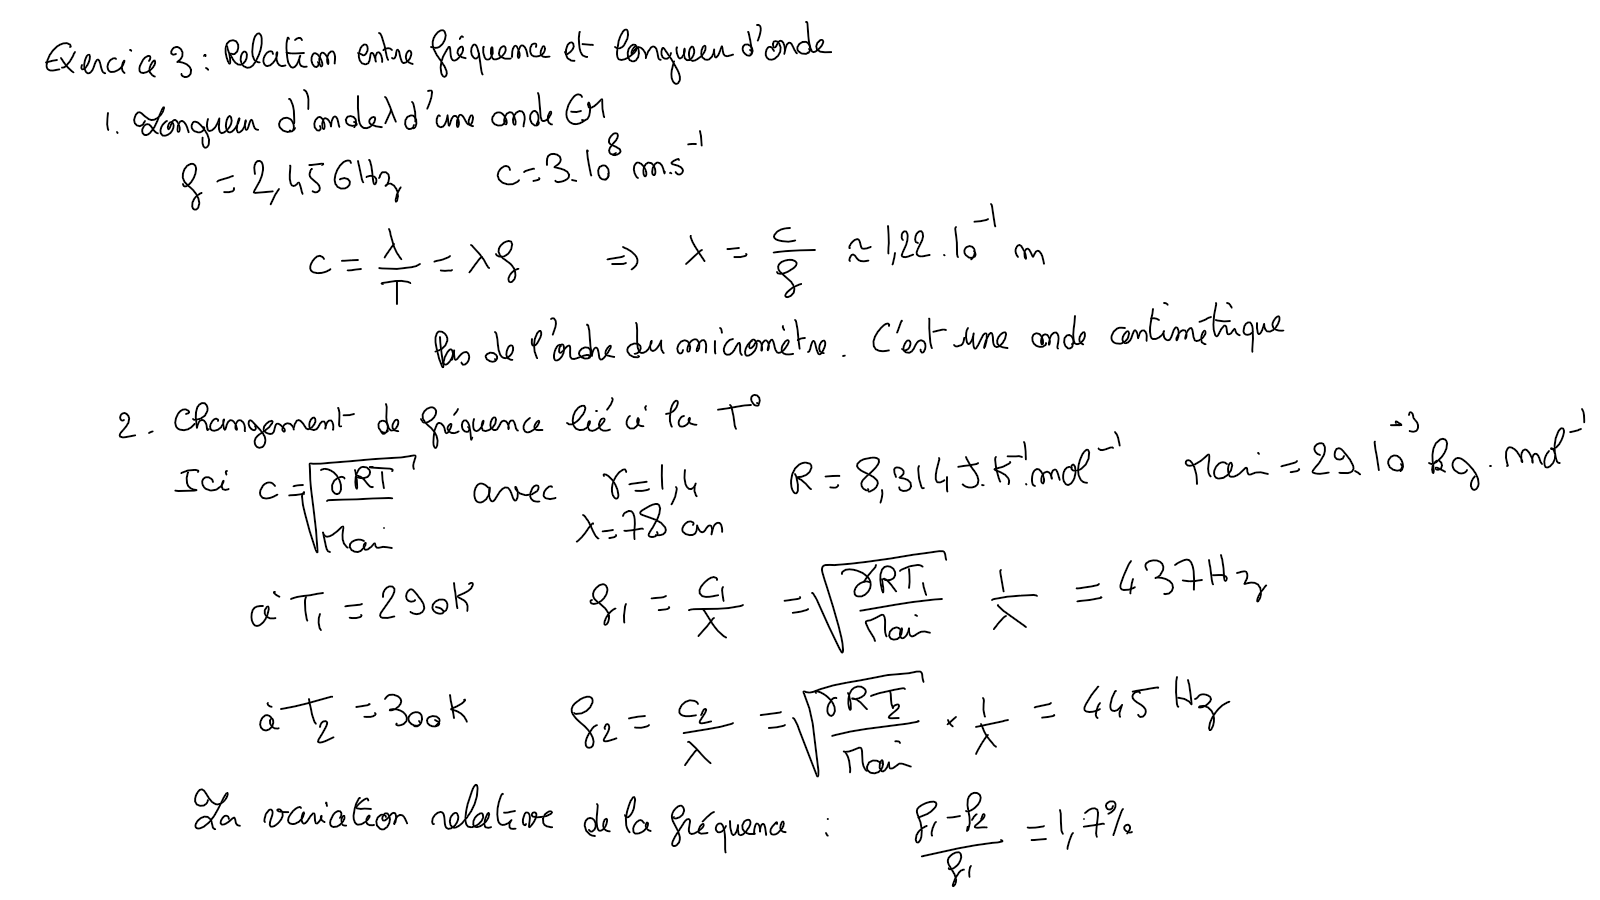 Exercice 3 : Relation entre fréquence et longueur d'onde
1. Longueur d'onde λ d'une onde EM
f = 2,45 GHz c = 3.10⁸ m.s⁻¹
c = λ/T = λf ⇒ λ = c/f ≈ 1,22.10⁻¹ m
Pas de l'ordre du micromètre. C'est une onde centimétrique
2. Changement de fréquence lié à la T°
Ici c = √(γRT/Mair) avec γ = 1,4 R = 8,314 J.K⁻¹.mol⁻¹ Mair = 29.10⁻³ kg.mol⁻¹
λ = 78 cm
à T₁ = 290K f₁ = c₁/λ = √(γRT₁/Mair) 1/λ = 437 Hz
à T₂ = 300K f₂ = c₂/λ = √(γRT₂/Mair) × 1/λ = 445 Hz
La variation relative de la fréquence : (f₁-f₂)/f₁ = 1,7%